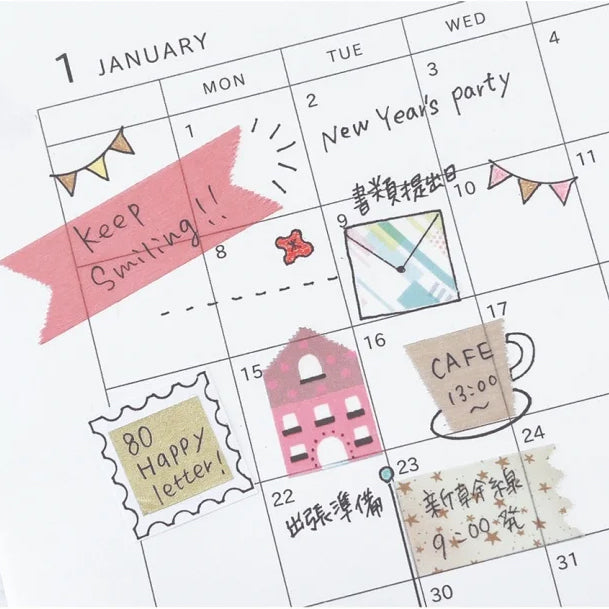 1 JANUARY
MON
TUE
WED
1
2
3
4
New Year's party
Keep
Smiling!!
書類提出日
8
9
10
11
15
16
17
CAFE
13:00
～
80
Happy
letter!
22
23
24
出張準備
新幹線
9:00発
30
31